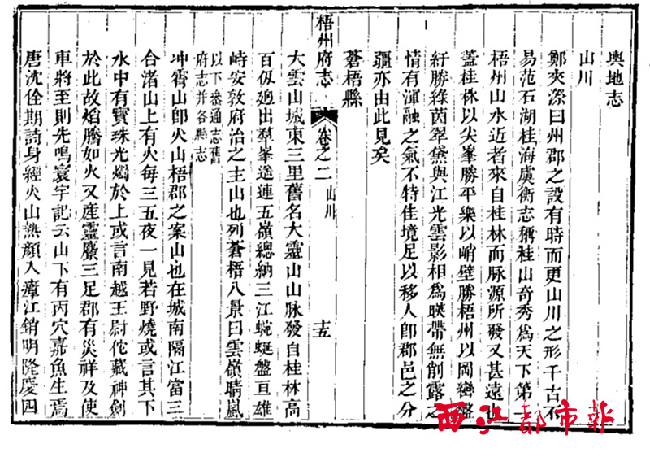 輿地志
山川
鄭夾漈曰州郡之設有時而更山川之形千古不
易范石湖桂海虞衡志稱桂山奇秀為天下第一
梧州山水近者來自桂林而脉源所發又甚遠也
蓋桂林以尖峯勝平樂以峭壁勝梧州以岡巒盤
紆勝綠茵翠黛與江光雲影相為聯帶無削露之
情有渾融之氣不特佳境足以移人卽郡邑之分
疆亦由此見矣
蒼梧縣
梧州府志
卷之二
山川
十五
大雲山城東三里舊名大靈山山脉發自桂林高
百仭迤出羣峯逶連五嶺總納三江蜿蜒盤亘雄
峙安敦府治之主山也列蒼梧八景曰雲嶺晴嵐
以下悉通志舊
府志并各縣志
冲霄山卽火山梧郡之案山也在城南隔江富三
合渚山上有火每三五夜一見若野燒或言其下
水中有寶珠光燭於上或言南越王尉佗藏神劍
於此故焰騰如火又産靈麞三足郡有災祥及使
車將至則先鳴寰宇記云山下有丙穴嘉魚生焉
唐沈佺期詩身經火山熱顔入瘴江銷明隆慶四
西江都市報